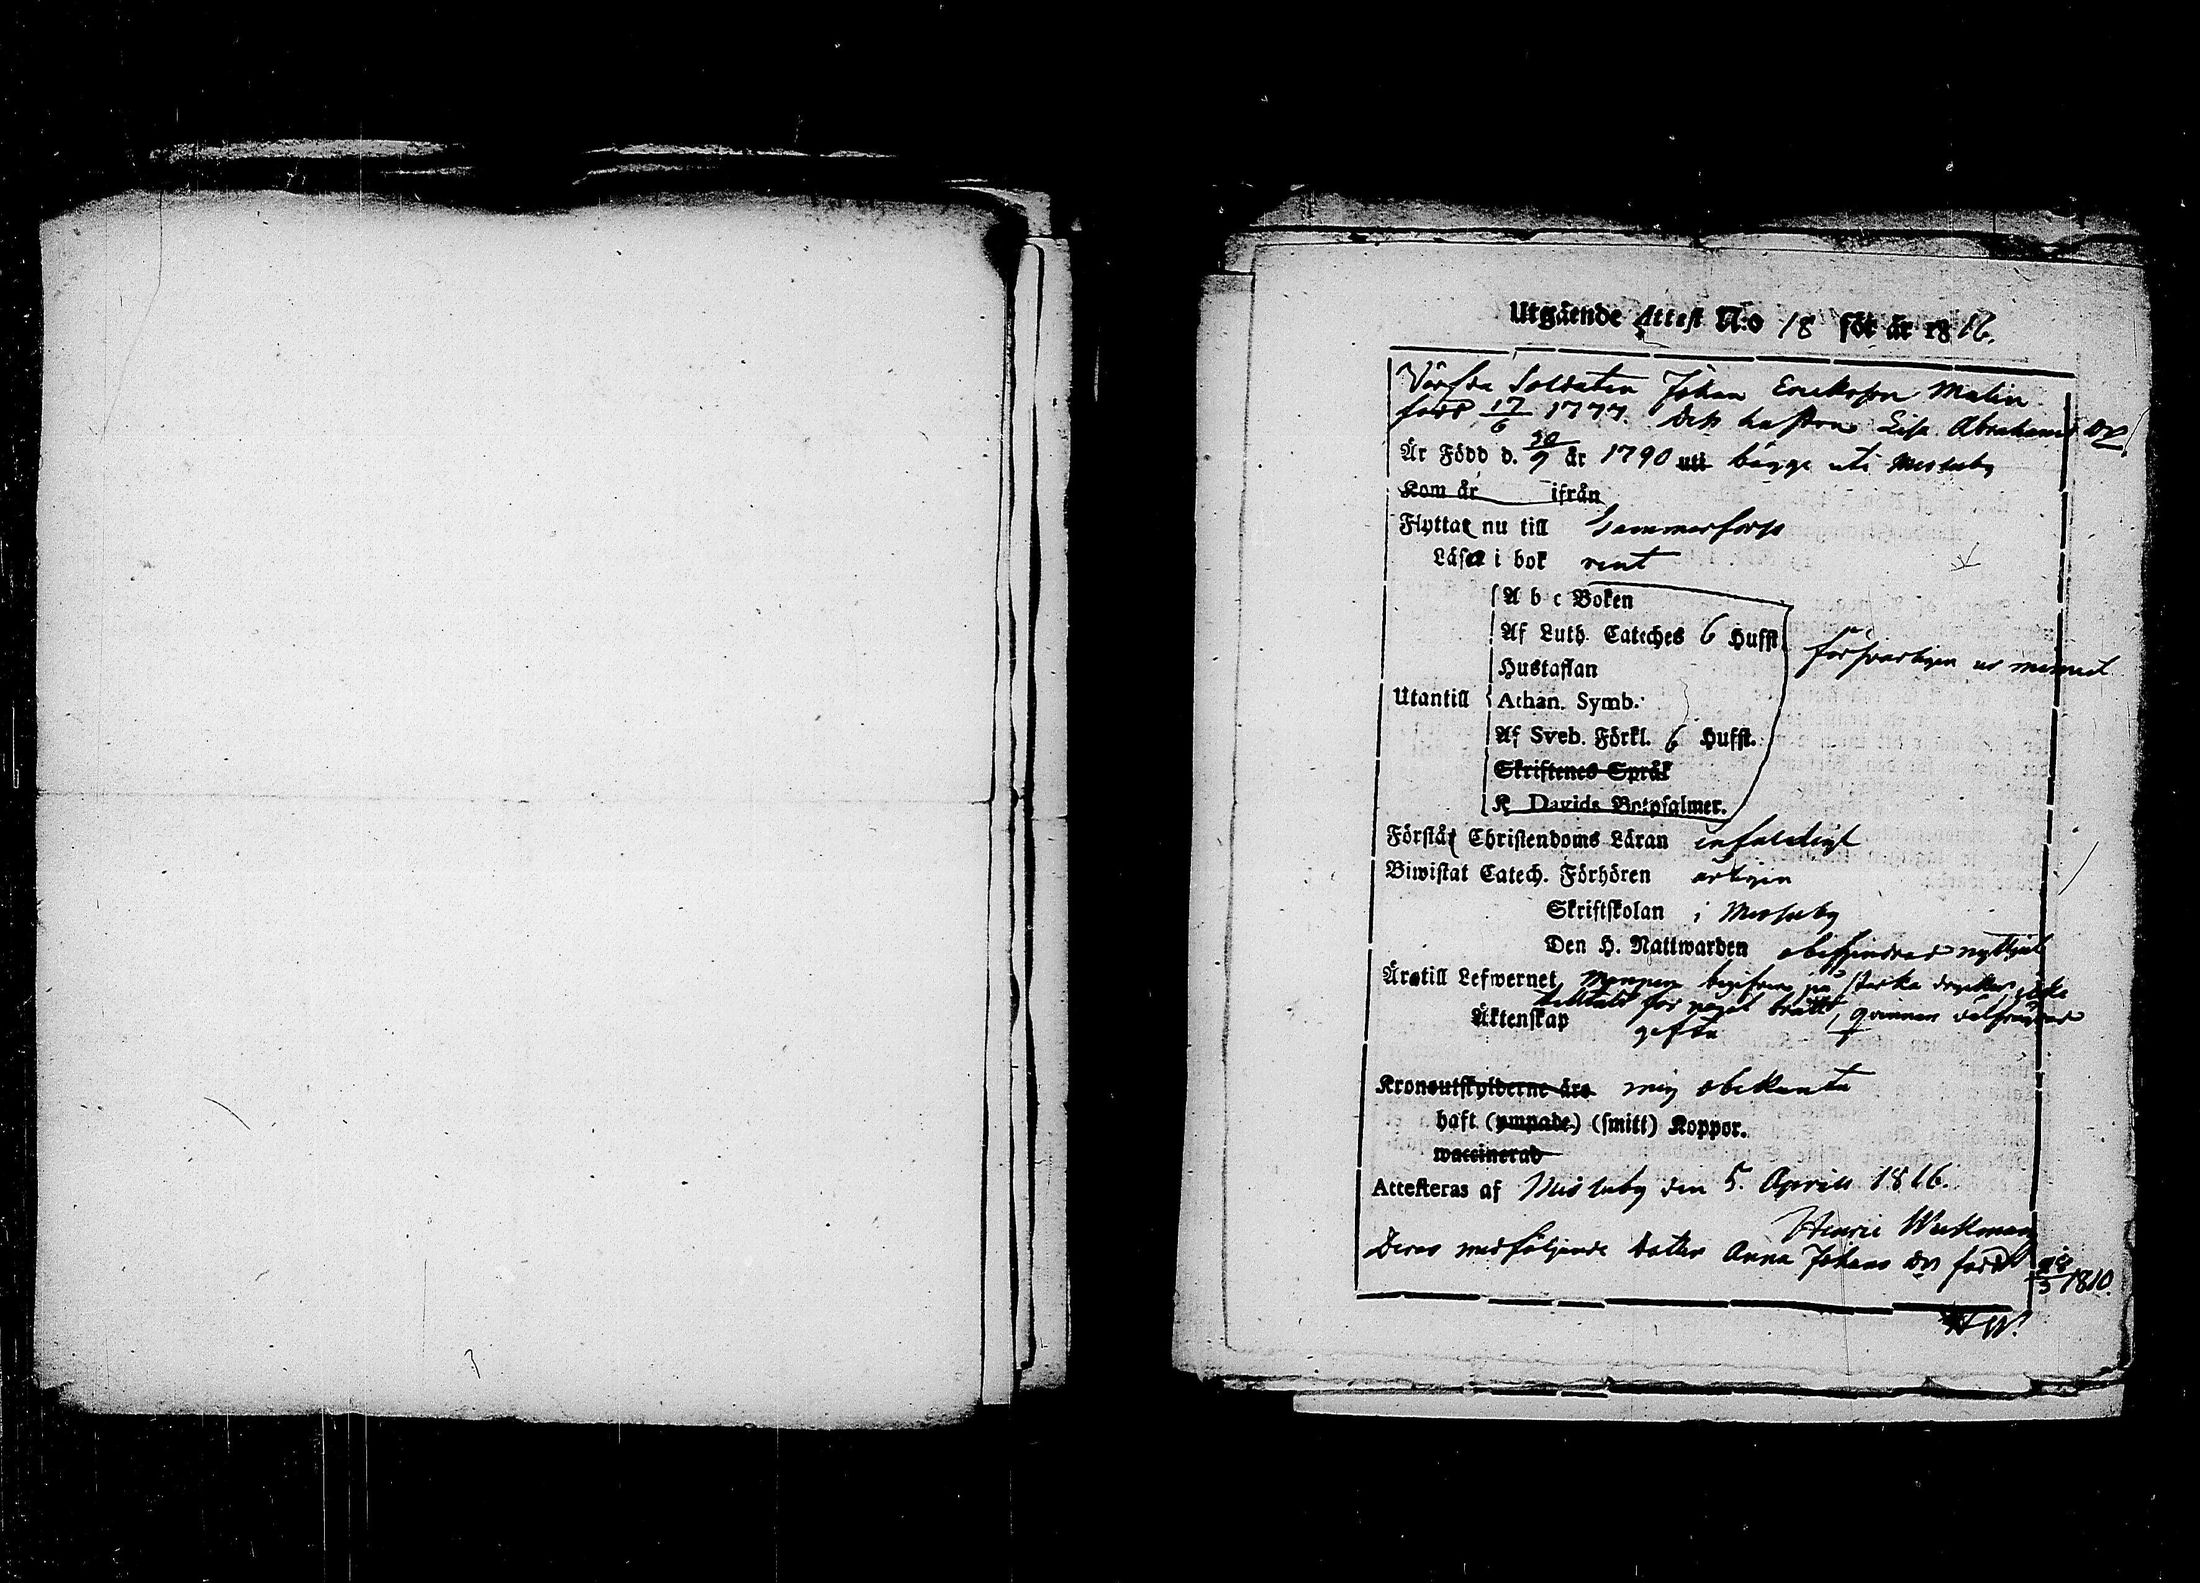 Utgående Attest N:o 18 för år 1816.
Värfda Soldaten Johan Ericksson Malin
född 17/6 1777. Dess hustru Lisa Abrahams dr
Är Född d. 30/9 år 1790 uti bägge uti Messuby
Kom år ifrån
Flyttar nu till Tammerfors
Läsa i bok rent
A b c Boken
Af Luth. Cateches 6 Hufst.
Hustaflan
försvarligen ur minnet
Utantill Athan. Symb.
Af Sveb. Förkl. 6 Hufst.
Skriftenes Språk
K Davids Botpsalmer.
Förstår Christendoms Läran enfaldigt
Biwistat Catech. Förhören årligen
Skriftskolan i Messuby
Den H. Nattwarden obehindrad nyttjat
Äro till Lefwernet Mannen begifven på starka drycker, icke
tilltald för något brott, qvinnan välfrejdad
Äktenskap gifta
Kronoutskylderne äro mig obekanta
haft (ympade) (smitt) Koppor.
waccinerad
Attesteras af Messuby den 5. Aprill 1816.
Henric Weckman
Deras medföljande dotter Anna Johans dr född 28/3 1810.
H W.